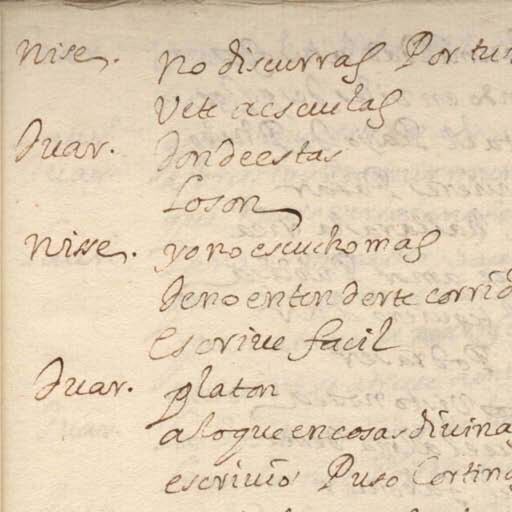 Nise. no discurras Por tu
vete a escuelas
Duar. donde estas
Loson
Nisse. yo no escucho mas
de no entenderte corrid
escrive facil
Duar. platon
a lo que en cosas divina
escrivio Puso Cortina